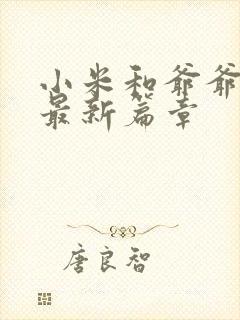 小米和爷爷
最新篇章
唐良智